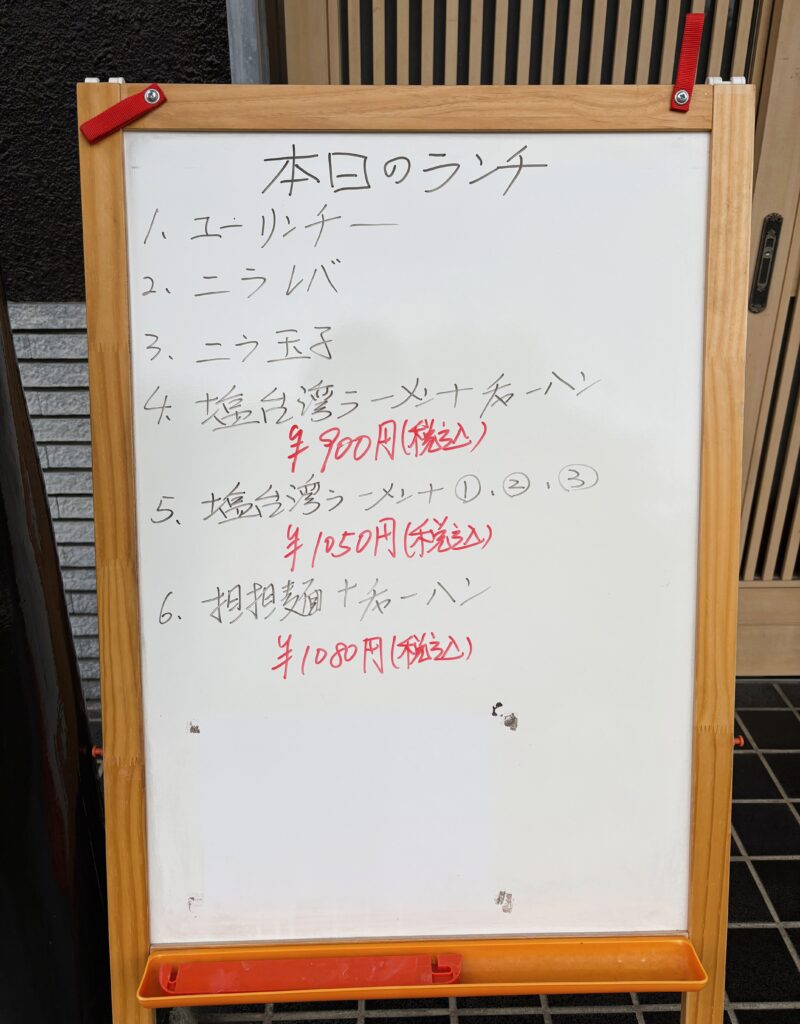 本日のランチ
1. ユーリンチー
2. ニラレバ
3. ニラ玉子
4. 塩台湾ラーメン+チャーハン
¥900円(税込)
5. 塩台湾ラーメン+①、②、③
¥1050円(税込)
6. 担担麺+チャーハン
¥1080円(税込)